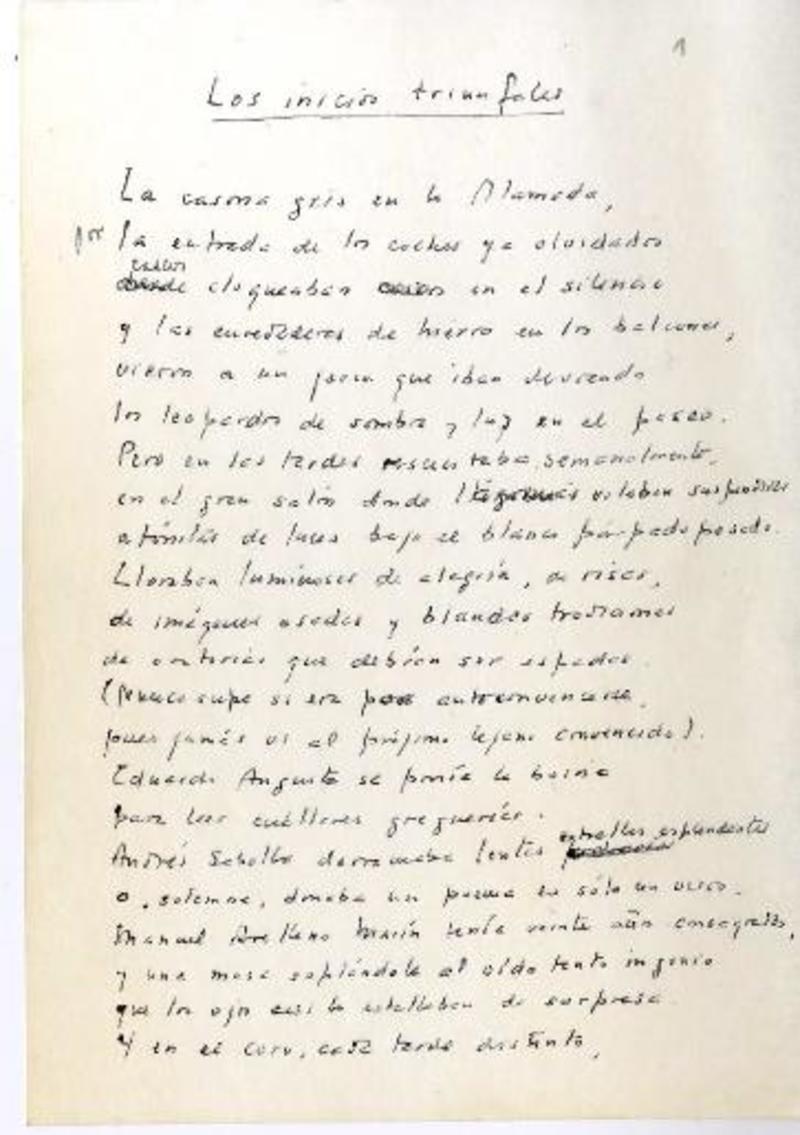 1
Los inicios triunfales
La casona gris en la Alameda,
por la entrada de los coches ya olvidados
cascos
cloqueaban en el silencio
y las enredaderas de hierro en los balcones,
vieron a un joven que iban devorando
los leopardos de sombra y luz en el paseo.
Pero en las tardes resucitaba, semanalmente,
en el gran salón donde lágrimas volaban suspendidas
atónitas de luces bajo el blanco párpado pesado.
Lloraban luminosas de alegría, de risas,
de imágenes osadas y blandas
de que debían ser espadas.
(Nunca supe si era para autoconvencerse,
pues jamás vi al prójimo lejano convencido).
Eduardo Anguita se ponía la boina
para leer greguerías.
estrellas esplendentes
Andrés Sabella derramaba lentas
o, solemne, donaba un poema en sólo un verso.
Manuel Arellano Marín tenía veinte años consagrados,
y una musa soplándole al oído tanto ingenio
que los ojos casi le estallaban de sorpresa
Y en el coro, cada tarde distinto,